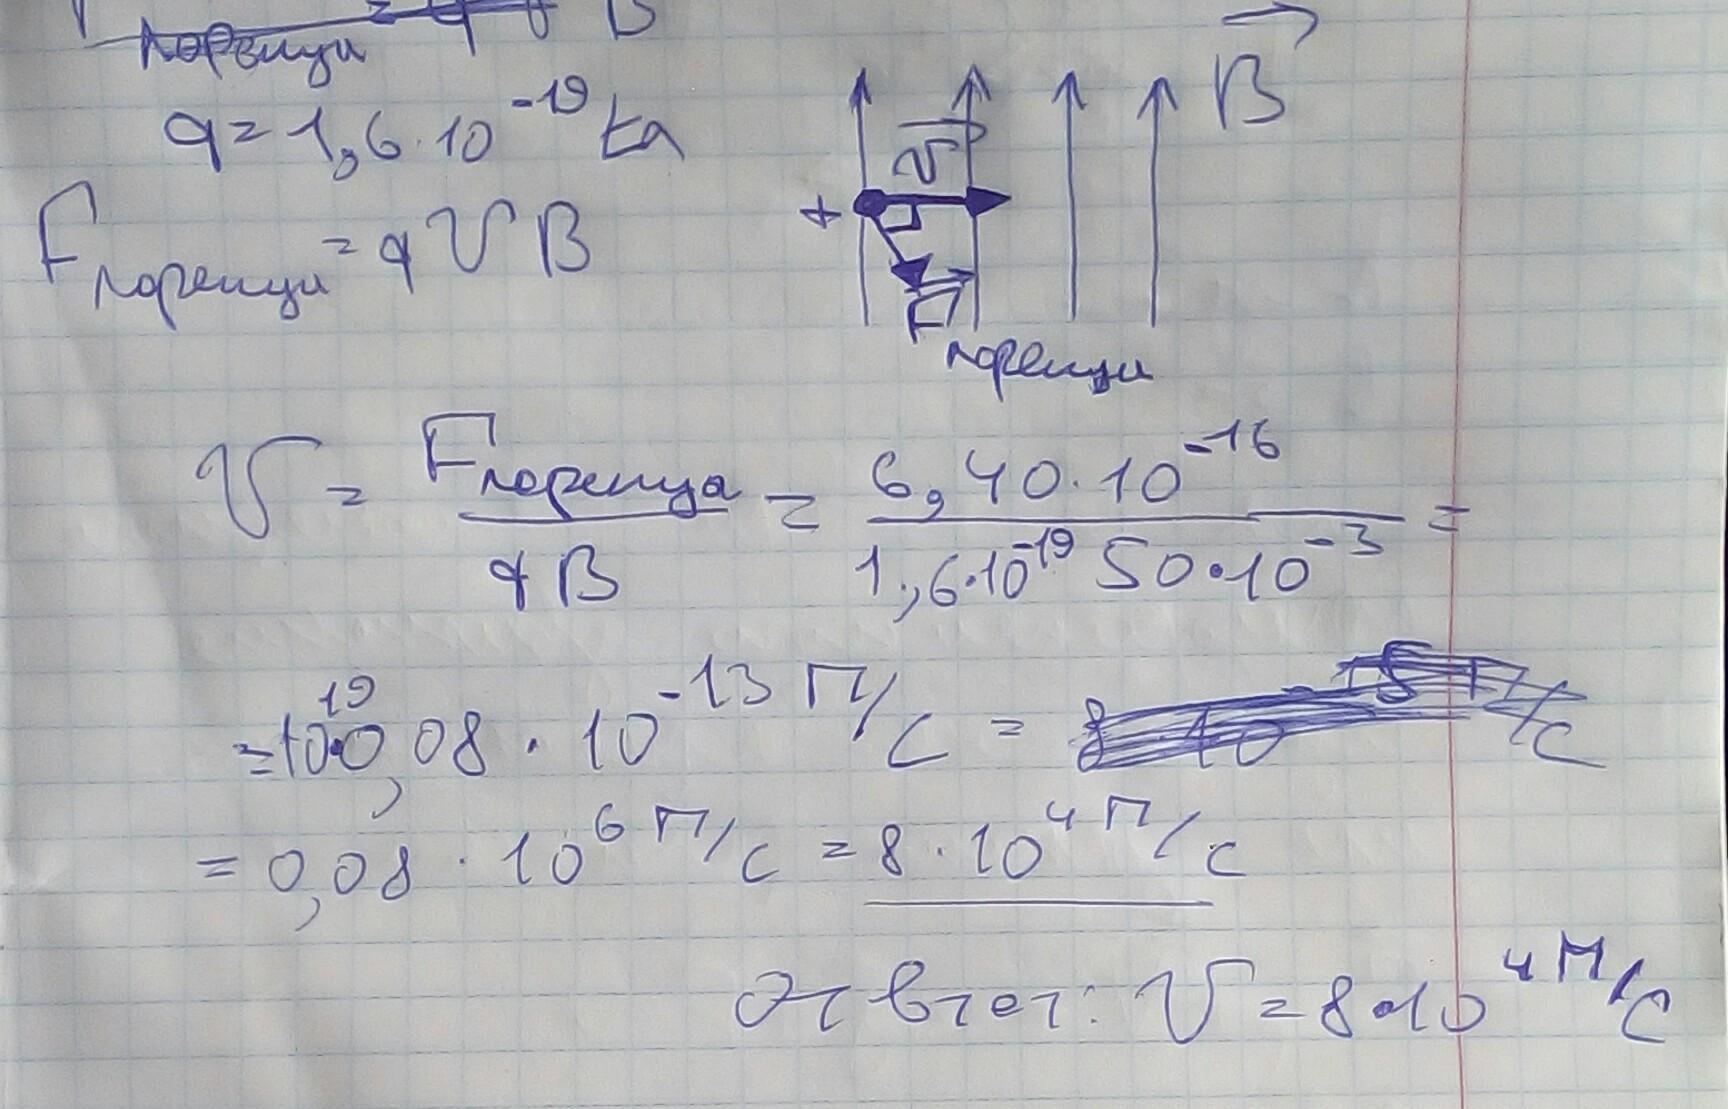 Fлоренца = q V B
q = 1,6 · 10⁻¹⁹ Кл
B⃗
v⃗
+
Fлоренца = q V B
F⃗лоренца
V = Fлоренца / qB = 6,40 · 10⁻¹⁶ / 1,6 · 10⁻¹⁹ 50 · 10⁻³ =
= 10¹⁹ · 0,08 · 10⁻¹³ м/с =
= 0,08 · 10⁶ м/с = 8 · 10⁴ м/с
Ответ: V = 8 · 10⁴ м/с